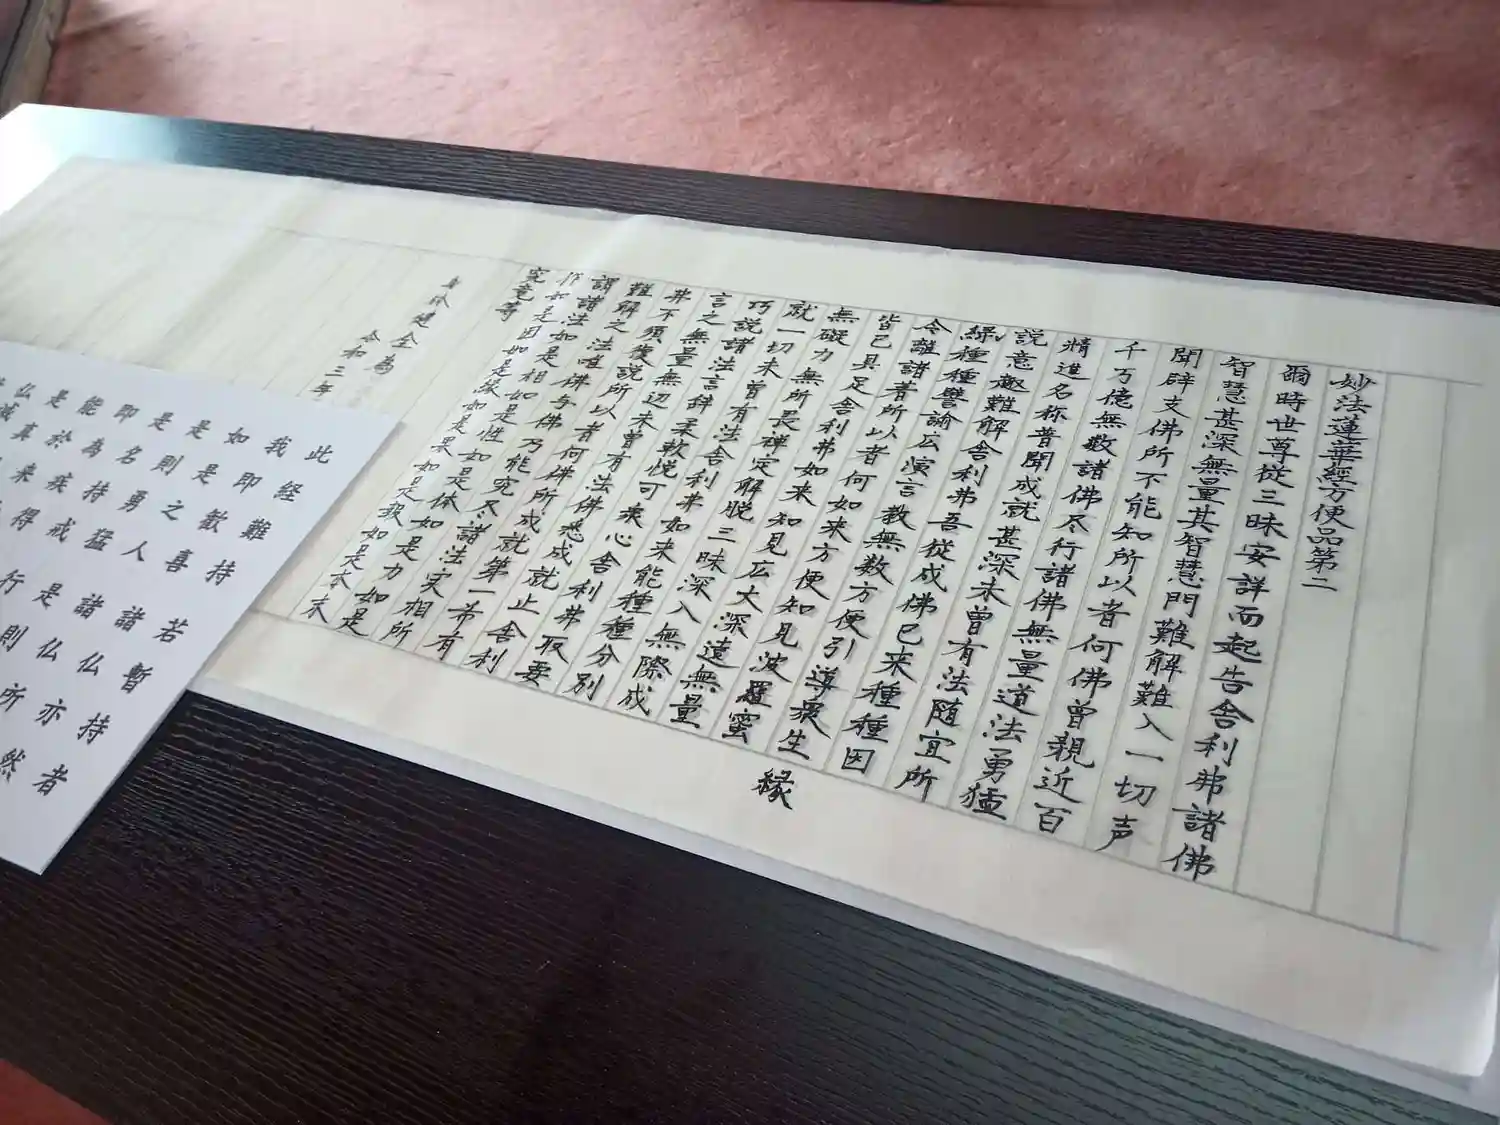 妙法蓮華經方便品第二
爾時世尊從三昧安詳而起告舍利弗諸佛
智慧甚深無量其智慧門難解難入一切声
聞辟支佛所不能知所以者何佛曾親近百
千万億無数諸佛尽行諸佛無量道法勇猛
精進名称普聞成就甚深未曾有法随宜所
説意趣難解舍利弗吾從成佛已来種種因
縁種種譬諭広演言教無数方便引導衆生
縁
令離諸著所以者何如来方便知見波羅蜜
皆已具足舍利弗如来知見広大深遠無量
無礙力無所畏禅定解脱三昧深入無際成
就一切未曾有法舍利弗如来能種種分別
巧説諸法言辞柔軟悦可衆心舍利弗取要
言之無量無辺未曾有法佛悉成就止舍利
弗不須復説所以者何佛所成就第一希有
難解之法唯佛与佛乃能究尽諸法実相所
謂諸法如是相如是性如是体如是力如是
作如是因如是縁如是果如是報如是本末
究竟等
身体健全為
令和三年
此経難持 若暫持者
我即歓喜 諸仏亦然
如是之人 諸仏所
是則勇猛 是則
是名持戒 行
即為疾得
能於来
是真
仏滅